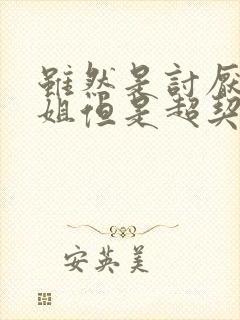 雖然是討厭
姐但是超契
安英美